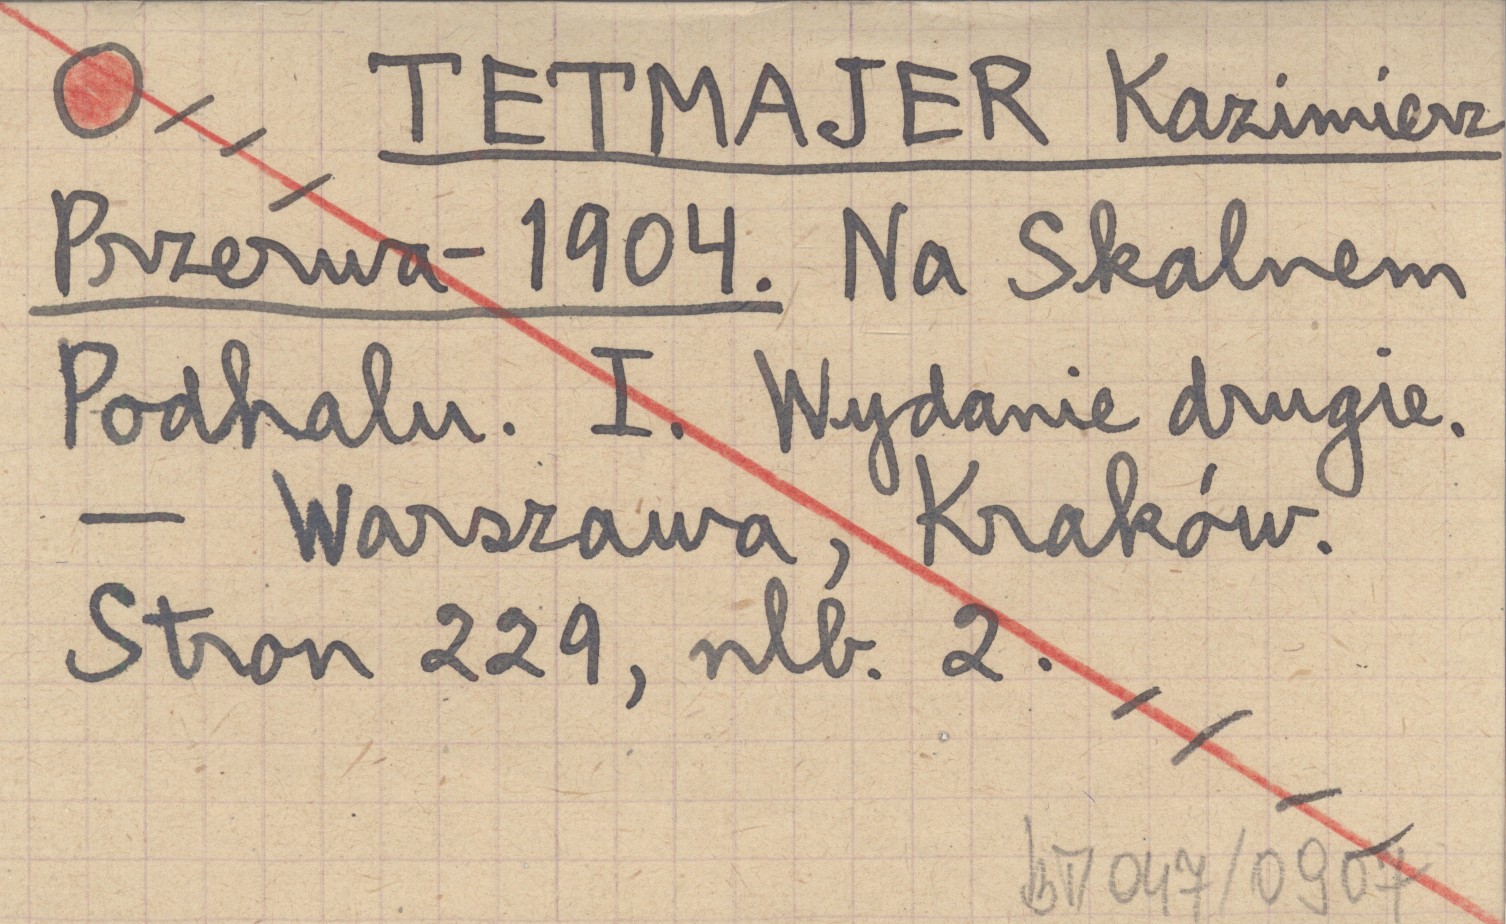 TETMAJER Kazimierz
Przerwa- 1904. Na Skalnem
Podhalu. I. Wydanie drugie.
— Warszawa, Kraków.
Stron 229, nlb. 2.
047/0907